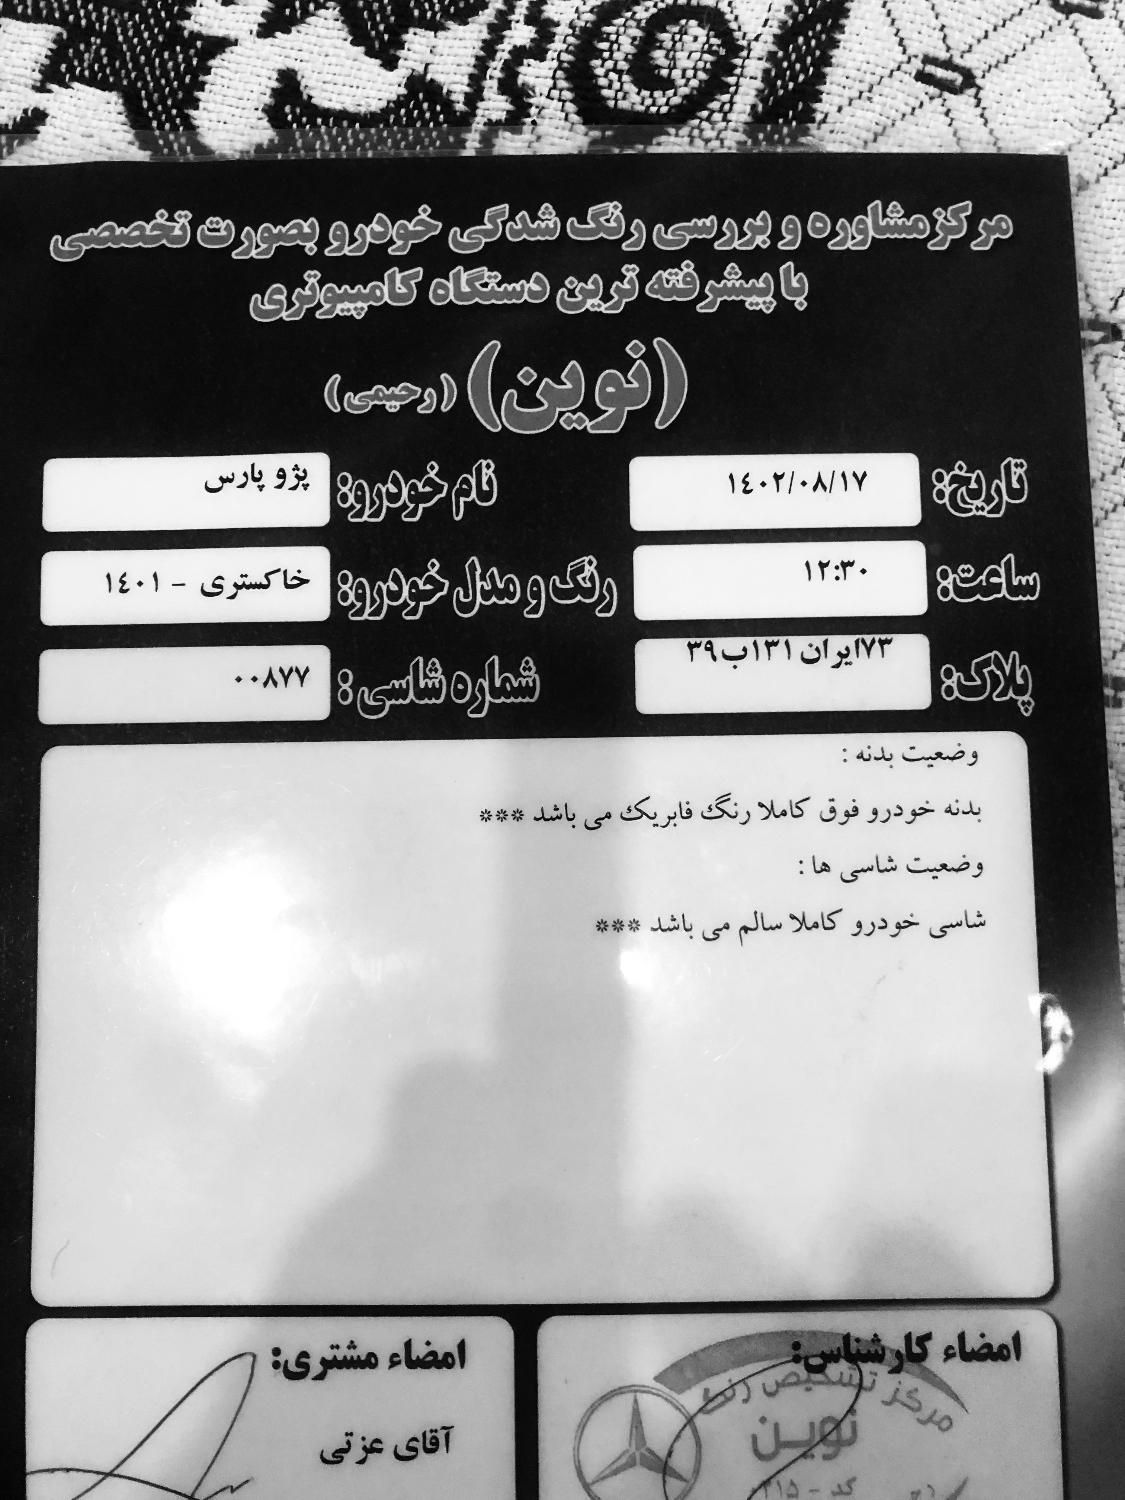 مرکز مشاوره و بررسی رنگ شدگی خودرو بصورت تخصصی
با پیشرفته ترین دستگاه کامپیوتری
(نوین) (رحیمی)
تاریخ: ۱۴۰۲/۰۸/۱۷ نام خودرو: پژو پارس
ساعت: ۱۲:۳۰ رنگ و مدل خودرو: خاکستری - ۱۴۰۱
پلاک: ۷۳ایران ۱۳۱ب۳۹ شماره شاسی: ۰۰۸۷۷
وضعیت بدنه :
بدنه خودرو فوق کاملا رنگ فابریک می باشد ***
وضعیت شاسی ها :
شاسی خودرو کاملا سالم می باشد ***
امضاء کارشناس: امضاء مشتری:
مرکز تشخیص رنگ
نوین
آقای عزتی
کد - ۲۱۵